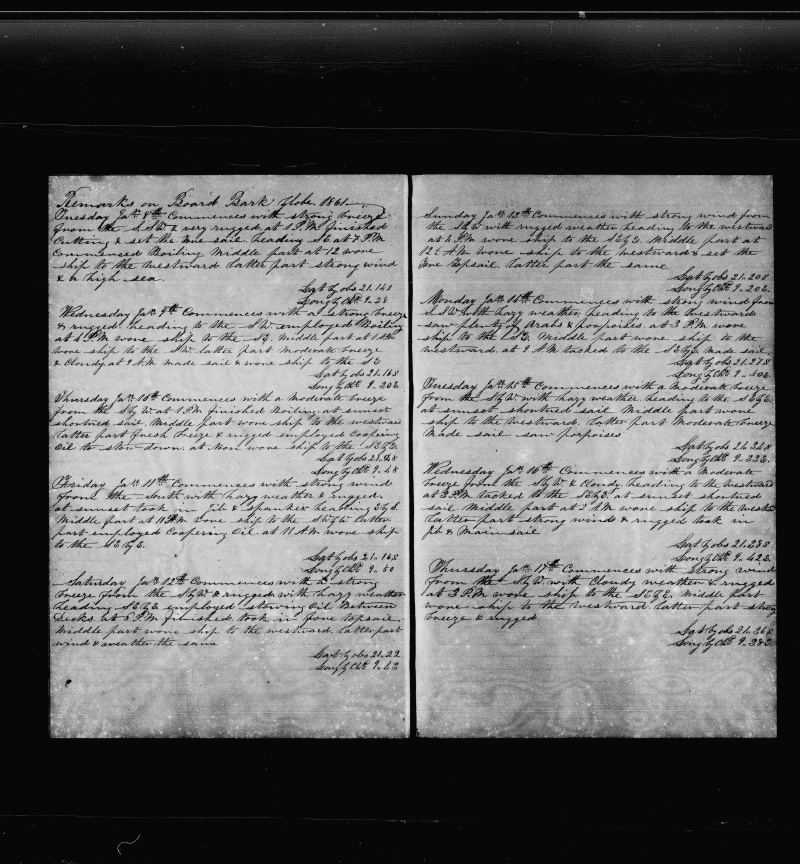 Remarks on Board Bark Globe. 1861
Tuesday Jan 8th Commences with strong breeze
from the S.S.W. & very rugged at 1 P.M. finished
Cutting & set the fore sail heading SE at 7 P.M.
Commenced Boiling Middle part at 12 wore
ship to the westward latter part strong wind
& a high sea.
Lat by obs 21.14 S
Long by Chr 9.28
Wednesday Jan 9th Commences with a strong breeze
& rugged heading to the SW employed Boiling
at 4 P.M. wore ship to the SE. Middle part at 1 AM
wore ship to the SW. latter part Moderate breeze
& Cloudy at 9 A.M. made sail & wore ship to the SE
Lat by obs 21.16 S
Long by Chr 9.20 E
Thursday Jan 10th Commences with a Moderate breeze
from the S by W at 1 P.M. finished Boiling at sunset
shortned sail Middle part wore ship to the westward
latter part fresh breeze & rugged employed Coopering
Oil to stow down at Noon wore ship to the SE by E.
Lat by obs 21.
Long by Chr 9.
Friday Jan 11th Commences with strong wind
from the South with hazy weather & rugged
at sunset took in Jib & spanker heading E by S.
Middle part at 11 P.M. wore ship to the SW by W latter
part employed Coopering Oil. at 11 A.M. wore ship
to the SE by E.
Lat by obs 21.16 S
Long by Chr 9.50
Saturday Jan 12th Commences with a strong
breeze from the S by W & rugged with hazy weather
heading SE by E employed stowing Oil Between
Decks. at 5 P.M. finished. took in fore topsail.
Middle part wore ship to the westward. latter part
wind & weather the same
Lat by obs 21.22
Long by Chr 9.13
Sunday Jan 13th Commences with strong wind from
the S by W with rugged weather heading to the westward
at 4 P.M. wore ship to the SE by E. Middle part at
12 wore ship to the westward & set the
fore Topsail. latter part the same.
Lat by obs 21.20 S
Long by Chr 9.20 E.
Monday Jan 14th Commences with strong wind from
with hazy weather heading to the westward
saw plenty of & porpoises at 3 P.M. wore
ship to the SE. Middle part wore ship to the
westward. at 9 A.M. tacked to the SE by E made sail
Lat by obs 21.27 S
Long by Chr 9.50 E.
Tuesday Jan 15th Commences with a Moderate breeze
from the S by W with hazy weather heading to the SE by E.
at sunset shortned sail Middle part wore
ship to the westward. latter part Moderate breeze
Made sail saw porpoises
Lat by obs 21.24 S
Long by Chr 9.22 E.
Wednesday Jan 16th Commences with a Moderate
breeze from the S by W & Cloudy heading to the westward
at 3 P.M. tacked to the SE by E at sunset shortned
sail. Middle part at 2 A.M. wore ship to the westward
latter part strong wind & rugged took in
Jib & Main sail
Lat by obs 21.23 S
Long by Chr 9.42 E.
Thursday Jan 17th Commences with strong wind
from the S by W. with Cloudy weather & rugged
at 3 P.M. wore ship to the SE by E. Middle part
wore ship to the westward latter part strong
breeze & rugged
Lat by obs 21.36 S
Long by Chr 9.38 E.